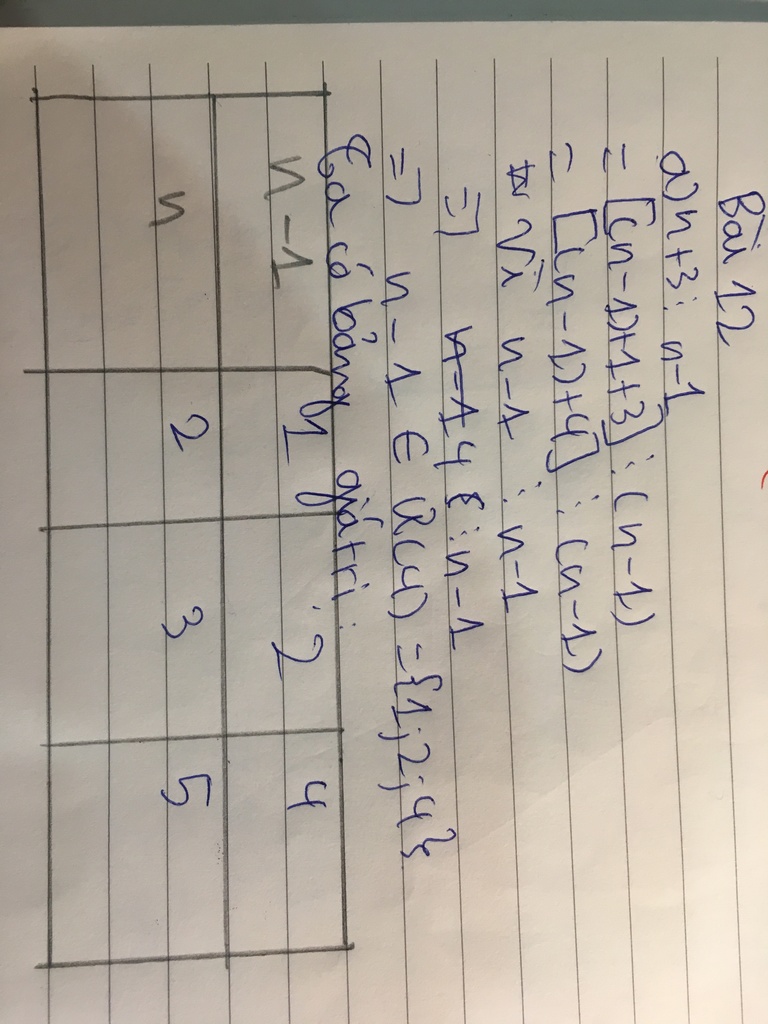 Bài 12
a) n+3 ⋮ n-1
= [(n-1)+1+3] ⋮ (n-1)
= [(n-1)+4] ⋮ (n-1)
Vì n-1 ⋮ n-1
=> 4 ⋮ n-1
=> n-1 ∈ Ư(4) = {1; 2; 4}
Ta có bảng giá trị:
n-1 1 2 4
n 2 3 5